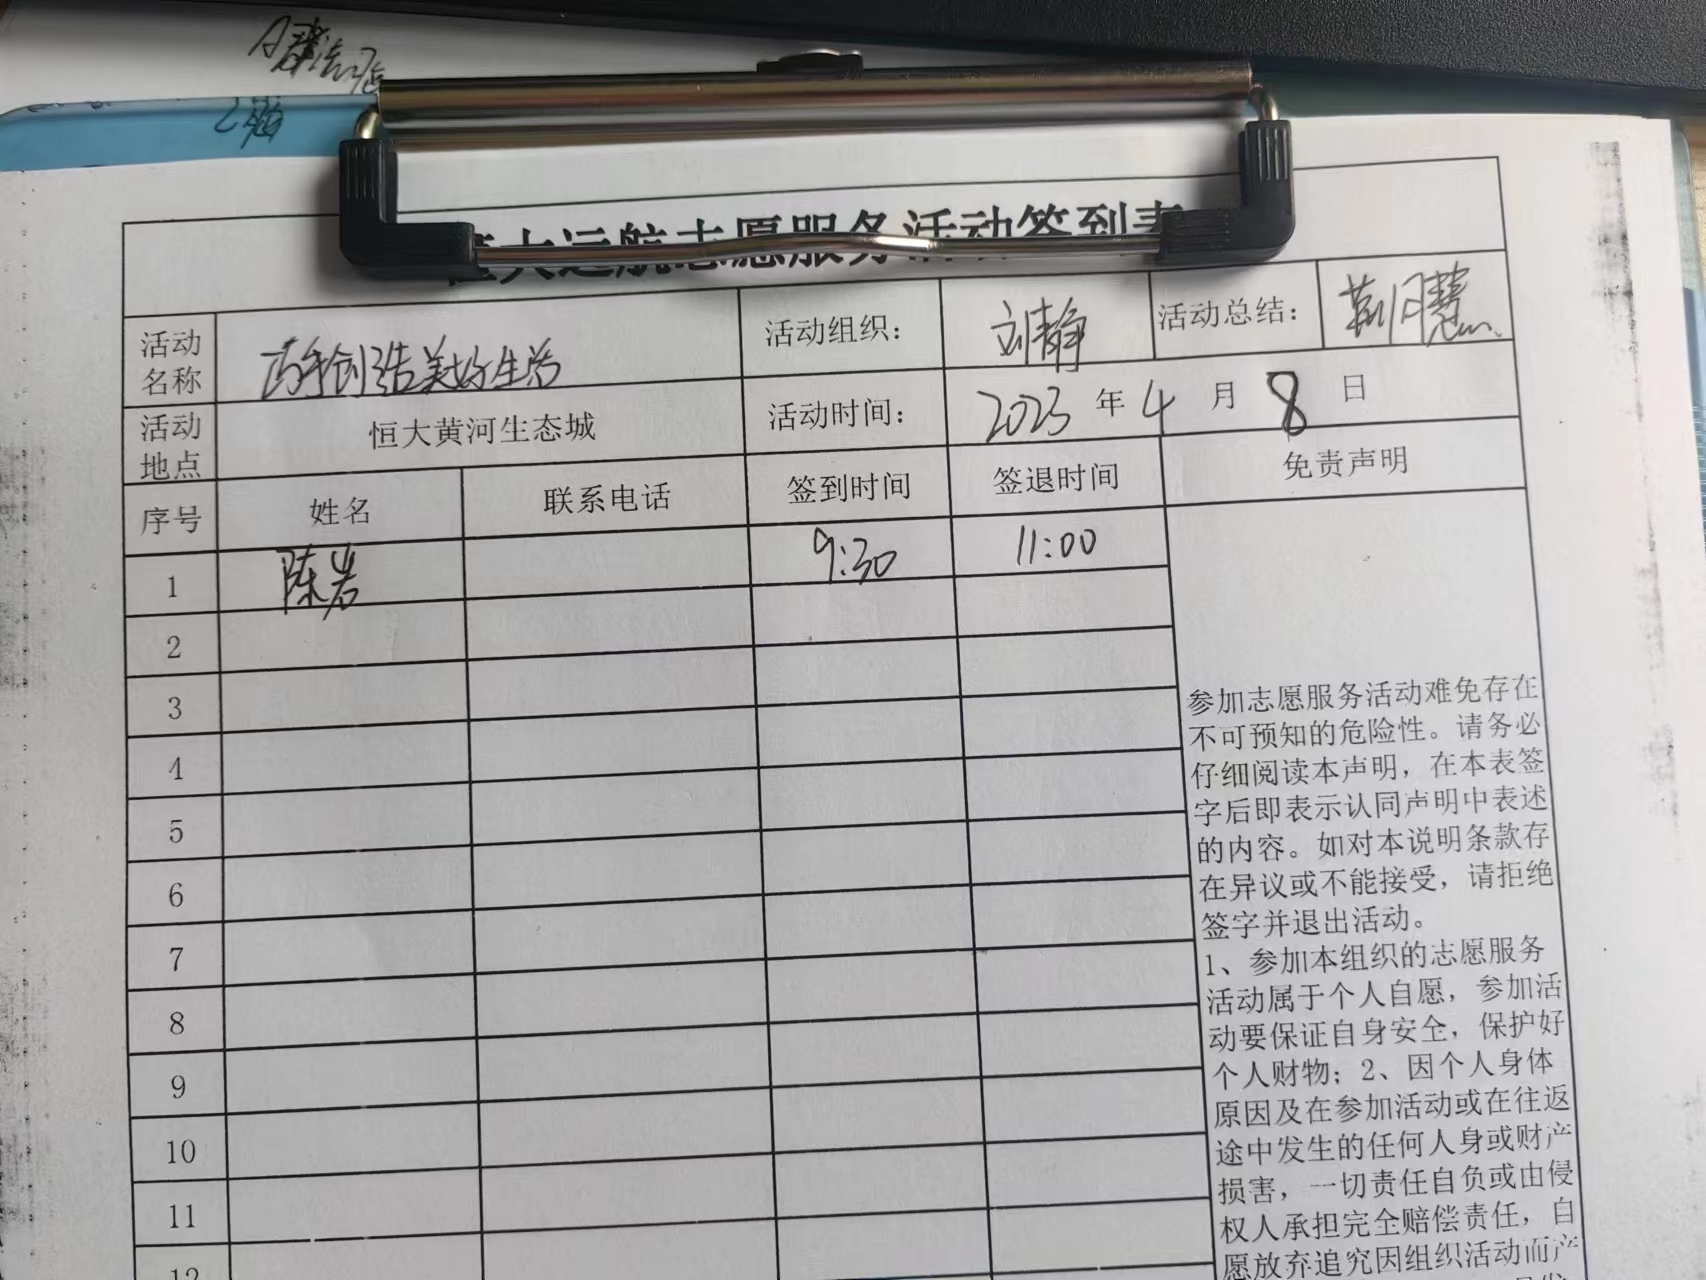 大运航志愿服务活动签到表
活动名称
巧手创造美好生活
活动组织：
刘静
活动总结：
荆月慧
活动地点
恒大黄河生态城
活动时间：
2023年4月8日
序号
姓名
联系电话
签到时间
签退时间
免责声明
1
陈岩
9:30
11:00
2
3
4
5
6
7
8
9
10
11
12
参加志愿服务活动难免存在
不可预知的危险性。请务必
仔细阅读本声明，在本表签
字后即表示认同声明中表述
的内容。如对本说明条款存
在异议或不能接受，请拒绝
签字并退出活动。
1、参加本组织的志愿服务
活动属于个人自愿，参加活
动要保证自身安全，保护好
个人财物；2、因个人身体
原因及在参加活动或在往返
途中发生的任何人身或财产
损害，一切责任自负或由侵
权人承担完全赔偿责任，自
愿放弃追究因组织活动而产